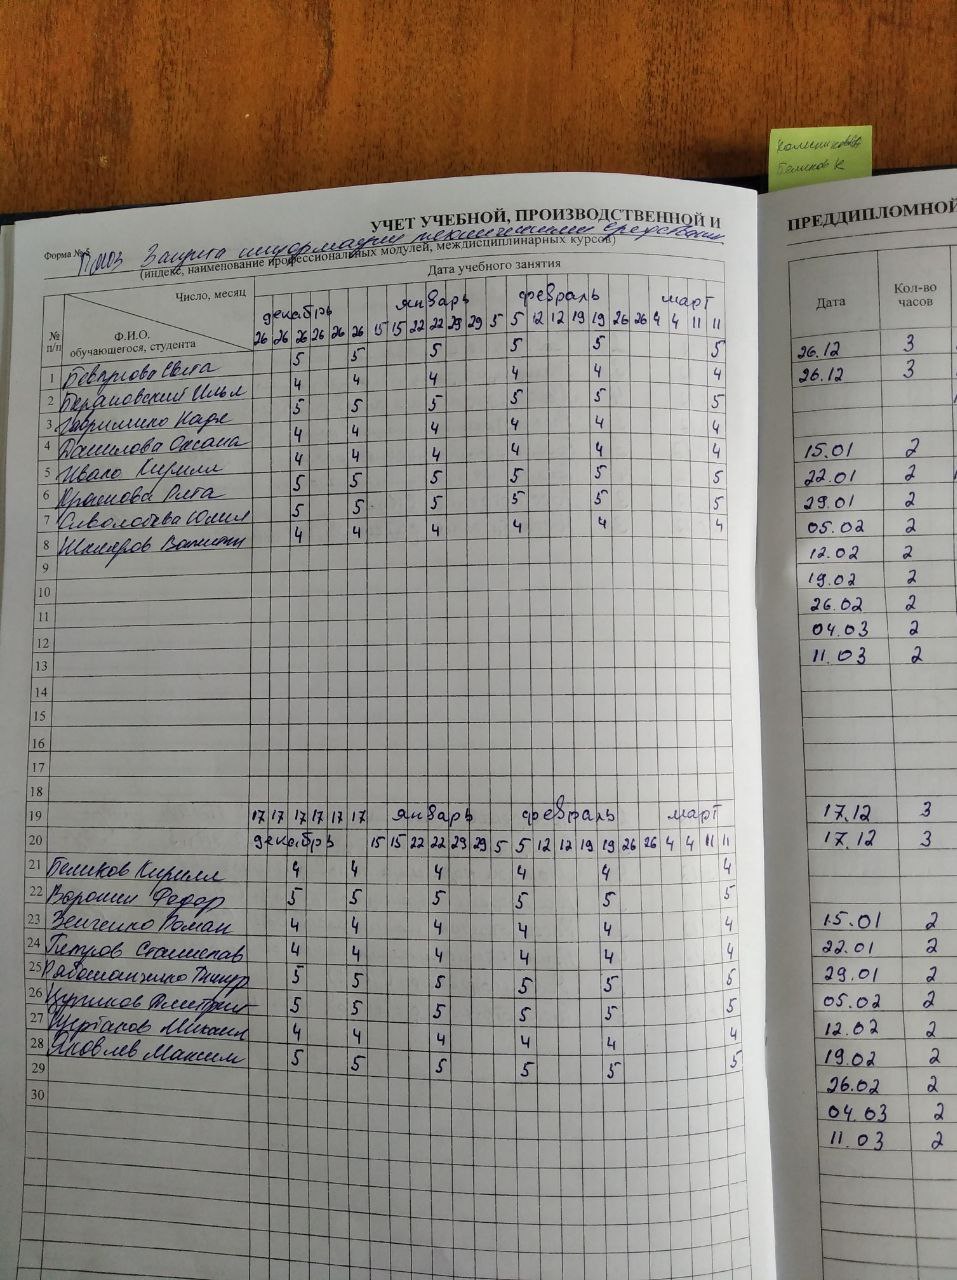 Калашникова
Беликов К
УЧЕТ УЧЕБНОЙ, ПРОИЗВОДСТВЕННОЙ И
Форма № 5
ПМ03 Защита информации техническими средствами
(индекс, наименование профессиональных модулей, междисциплинарных курсов)
Число, месяц
Дата учебного занятия
декабрь январь февраль март
№ п/п
Ф.И.О.
обучающегося, студента
26 26 26 26 26 26 15 15 22 22 29 29 5 5 12 12 19 19 26 26 4 4 11 11
1 Света 5 5 5 5 5 5
2 Барановский Илья 4 4 4 4 4 4
3 Гавриленко Надя 5 5 5 5 5 5
4 Данилова Оксана 4 4 4 4 4 4
5 Кирилл 4 4 4 4 4 4
6 Рита 5 5 5 5 5 5
7 Юлия 5 5 5 5 5 5
8 4 4 4 4 4 4
9
10
11
12
13
14
15
16
17
18
19 17 17 17 17 17 17 январь февраль март
20 декабрь 15 15 22 22 29 29 5 5 12 12 19 19 26 26 4 4 11 11
21 Беликов Кирилл 4 4 4 4 4 4
22 Ворошин Федор 5 5 5 5 5 5
23 Зенченко Роман 4 4 4 4 4 4
24 Станислав 4 4 4 4 4 4
25 Тимур 5 5 5 5 5 5
26 Цуриков Дмитрий 5 5 5 5 5 5
27 Михаил 4 4 4 4 4 4
28 Яковлев Максим 5 5 5 5 5 5
29
30
ПРЕДДИПЛОМНОЙ
Дата
Кол-во
часов
26.12 3
26.12 3
15.01 2
22.01 2
29.01 2
05.02 2
12.02 2
19.02 2
26.02 2
04.03 2
11.03 2
17.12 3
17.12 3
15.01 2
22.01 2
29.01 2
05.02 2
12.02 2
19.02 2
26.02 2
04.03 2
11.03 2